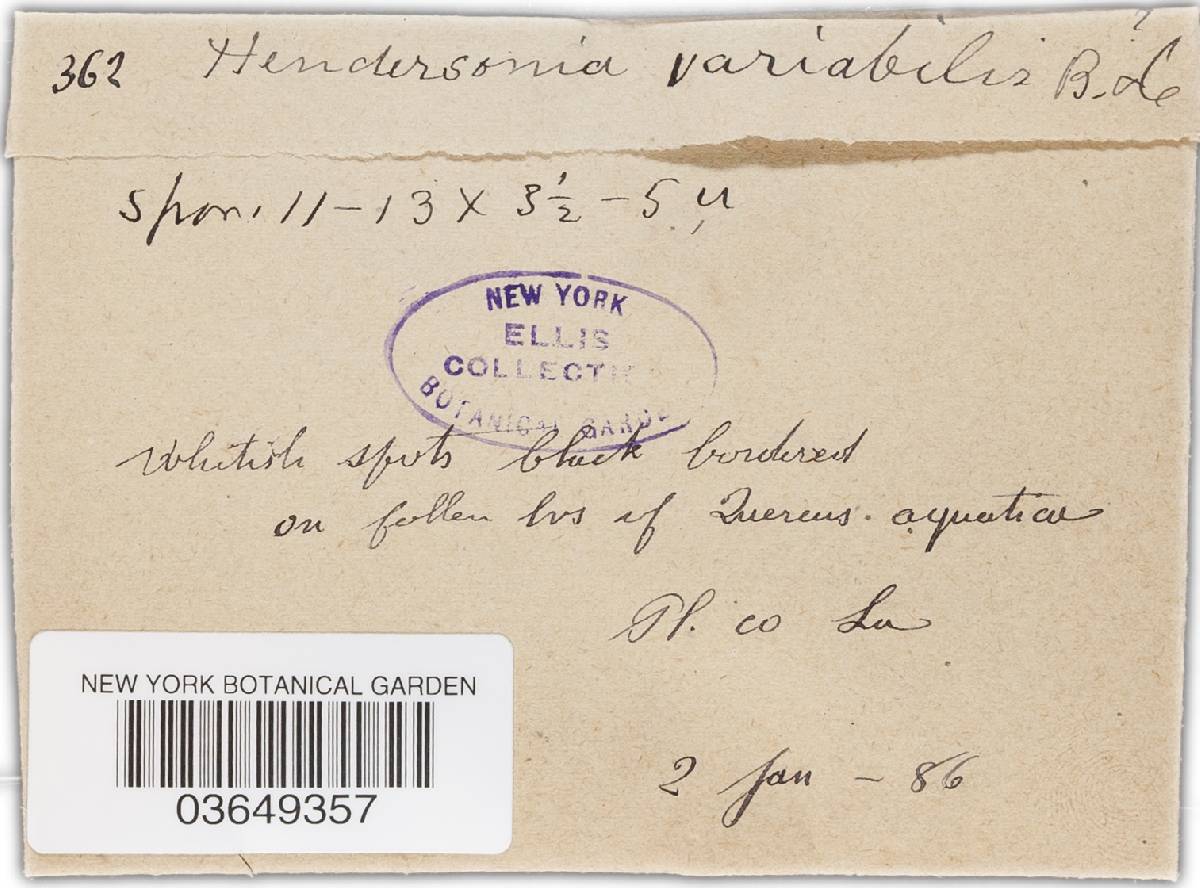 362 Hendersonia variabilis B. &
spor. 11-13 X 3½-5 µ
NEW YORK
ELLIS
COLLECTI
BOTANICAL GARDE
Whitish spots black bordered
on fallen lvs of Quercus. aquatica
Pl. co La
2 Jan - 86
NEW YORK BOTANICAL GARDEN
03649357